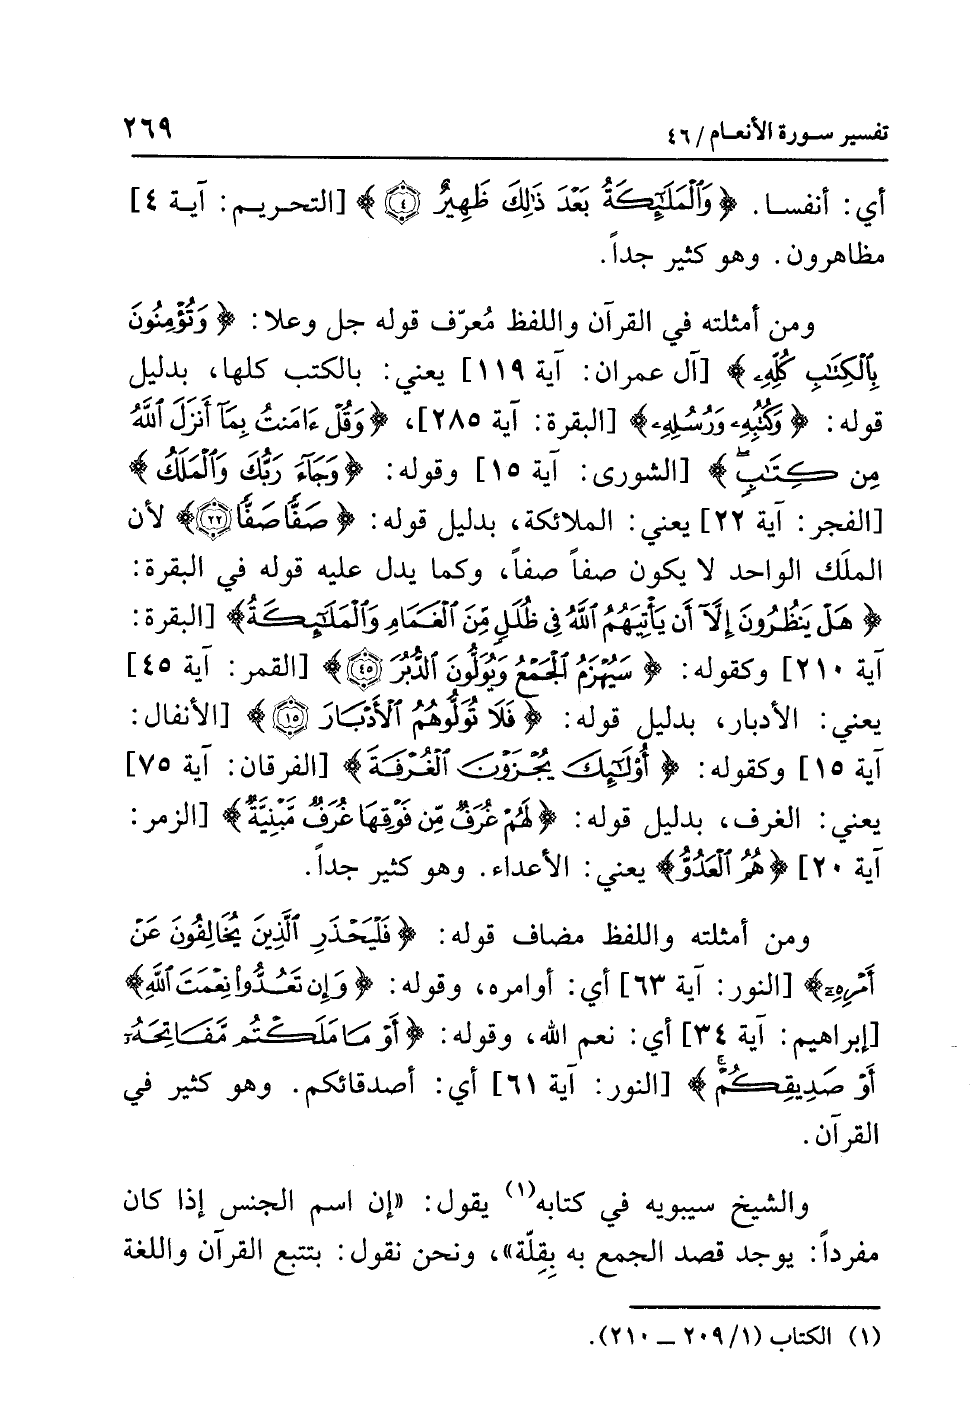 تفسير سـورة الأنعـام / ٤٦ ٢٦٩
أي: أنفسا. ﴿وَالْمَلَٰٓئِكَةُ بَعْدَ ذَٰلِكَ ظَهِيرٌ ٤﴾ [التحريم: آية ٤]
مظاهرون. وهو كثير جداً.
ومن أمثلته في القرآن واللفظ مُعرّف قوله جل وعلا: ﴿وَتُؤْمِنُونَ
بِالْكِتَٰبِ كُلِّهِۦ﴾ [آل عمران: آية ١١٩] يعني: بالكتب كلها، بدليل
قوله: ﴿وَكُتُبِهِۦ وَرُسُلِهِۦ﴾ [البقرة: آية ٢٨٥]، ﴿وَقُلْ ءَامَنتُ بِمَآ أَنزَلَ اللَّهُ
مِن كِتَٰبٍۖ﴾ [الشورى: آية ١٥] وقوله: ﴿وَجَآءَ رَبُّكَ وَالْمَلَكُ﴾
[الفجر: آية ٢٢] يعني: الملائكة، بدليل قوله: ﴿صَفًّا صَفًّا ٢٢﴾ لأن
الملَك الواحد لا يكون صفاً صفاً، وكما يدل عليه قوله في البقرة:
﴿هَلْ يَنظُرُونَ إِلَّآ أَن يَأْتِيَهُمُ اللَّهُ فِي ظُلَلٍ مِّنَ الْغَمَامِ وَالْمَلَٰٓئِكَةُ﴾ [البقرة:
آية ٢١٠] وكقوله: ﴿سَيُهْزَمُ الْجَمْعُ وَيُوَلُّونَ الدُّبُرَ ٤٥﴾ [القمر: آية ٤٥]
يعني: الأدبار، بدليل قوله: ﴿فَلَا تُوَلُّوهُمُ الْأَدْبَارَ ١٥﴾ [الأنفال:
آية ١٥] وكقوله: ﴿أُوْلَٰٓئِكَ يُجْزَوْنَ الْغُرْفَةَ﴾ [الفرقان: آية ٧٥]
يعني: الغرف، بدليل قوله: ﴿لَهُمْ غُرَفٌ مِّن فَوْقِهَا غُرَفٌ مَّبْنِيَّةٌ﴾ [الزمر:
آية ٢٠] ﴿هُمُ الْعَدُوُّ﴾ يعني: الأعداء. وهو كثير جداً.
ومن أمثلته واللفظ مضاف قوله: ﴿فَلْيَحْذَرِ الَّذِينَ يُخَالِفُونَ عَنْ
أَمْرِهِۦٓ﴾ [النور: آية ٦٣] أي: أوامره، وقوله: ﴿وَإِن تَعُدُّوا نِعْمَتَ اللَّهِ﴾
[إبراهيم: آية ٣٤] أي: نعم الله، وقوله: ﴿أَوْ مَا مَلَكْتُم مَّفَاتِحَهُۥٓ
أَوْ صَدِيقِكُمْۚ﴾ [النور: آية ٦١] أي: أصدقائكم. وهو كثير في
القرآن.
والشيخ سيبويه في كتابه(١) يقول: «إن اسم الجنس إذا كان
مفرداً: يوجد قصد الجمع به بِقِلّة»، ونحن نقول: بتتبع القرآن واللغة
(١) الكتاب (١/ ٢٠٩ ــ ٢١٠).